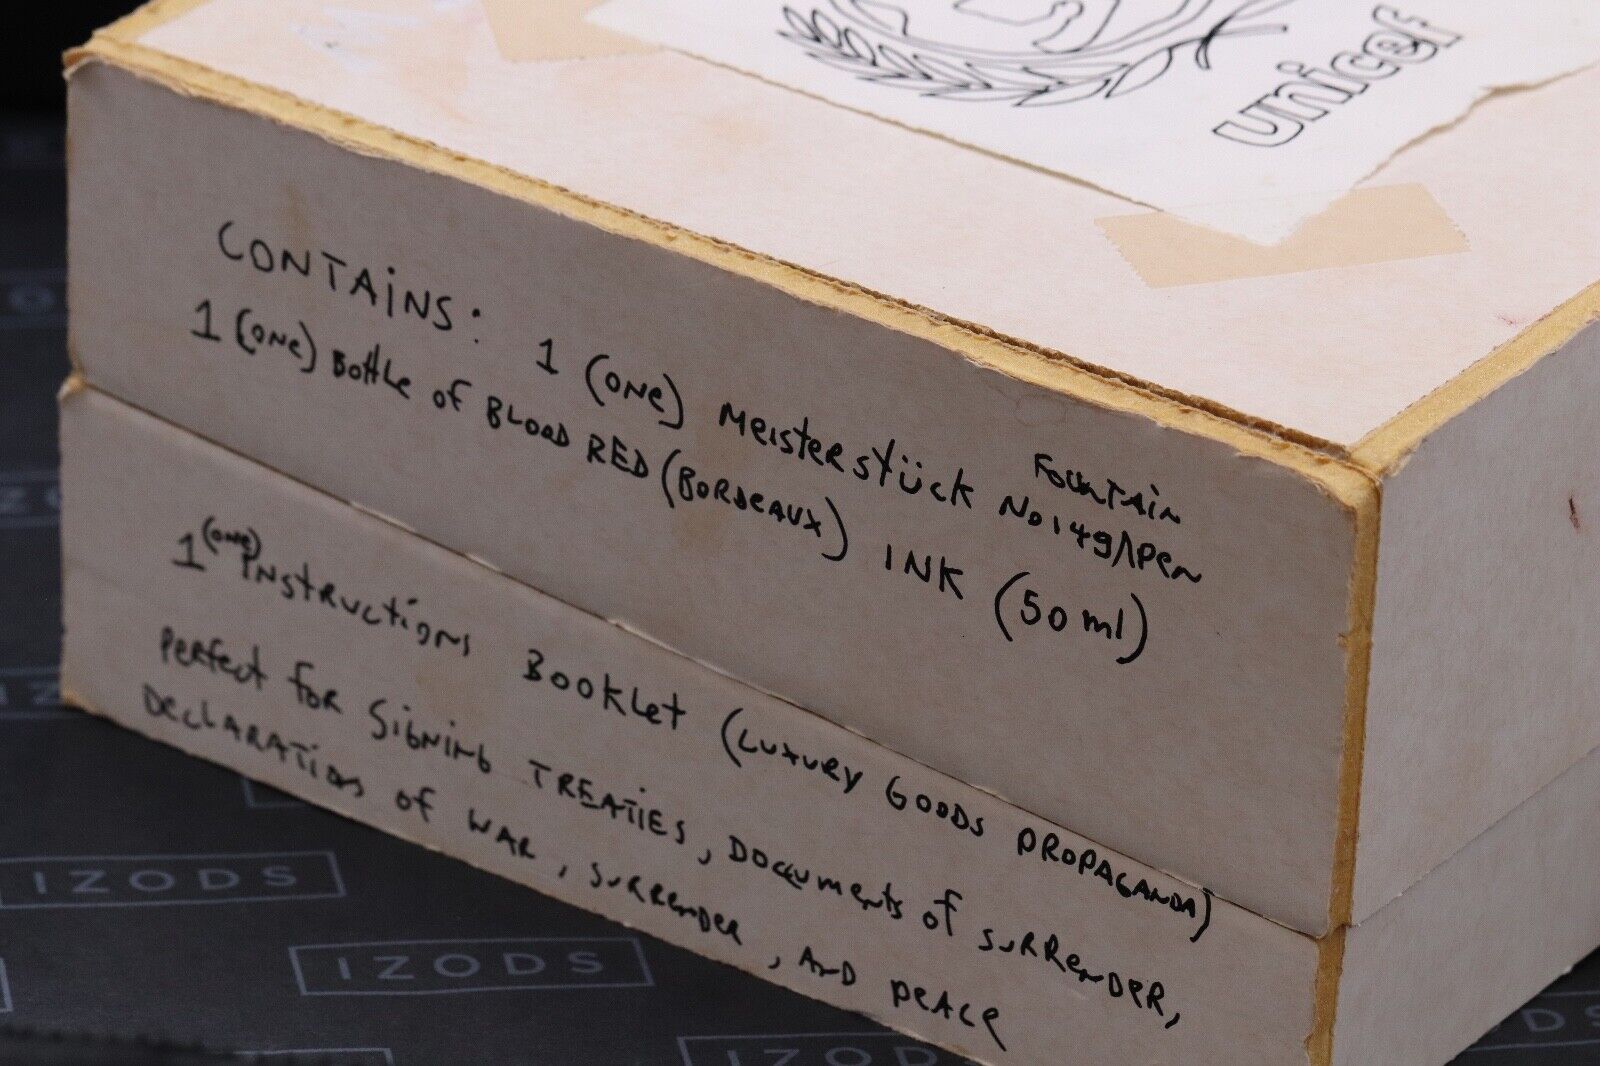 unicef
CONTAiNS: 1 (ONe) MeisterStück No 149 / Fountain Pen
1 (ONe) Bottle of BLOOD RED (BORDEAUX) INK (50 ml)
1 (one) INStructions Booklet (LUXURY GOODS PROPAGANDA)
Perfect for SiGNiNG TREATiES, DOCumeNts of SuRReNDeR,
DecLARATiONS of WAR, SuRReNDeR, AND peAce
IZODS
IZODS
IZODS